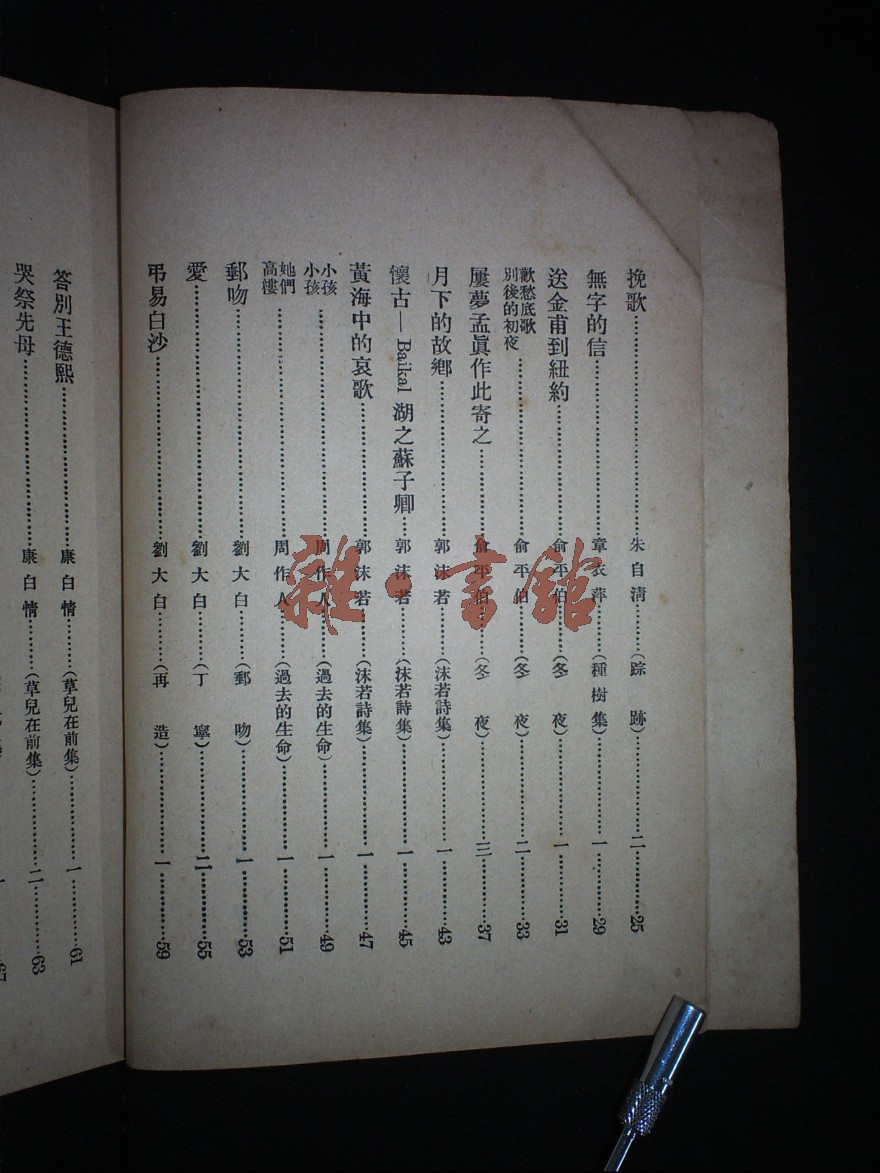 挽歌……朱自淸……(踪跡)……二……25
無字的信……章衣萍……(種樹集)……一……29
送金甫到紐約……俞平伯……(冬夜)……一……31
歡愁底歌
別後的初夜……俞平伯……(冬夜)……二……33
屢夢孟眞作此寄之……俞平伯……(冬夜)……三……37
月下的故鄕……郭沫若……(沫若詩集)……一……43
懷古—Baikal 湖之蘇子卿……郭沫若……(沫若詩集)……一……45
黃海中的哀歌……郭沫若……(沫若詩集)……一……47
小孩
小孩……周作人……(過去的生命)……一……49
她們
高樓……周作人……(過去的生命)……一……51
郵吻……劉大白……(郵吻)……一……53
愛……劉大白……(丁寧)……二……55
弔易白沙……劉大白……(再造)……一……59
答別王德熙……康白情……(草兒在前集)……一……61
哭祭先母……康白情……(草兒在前集)……二……63
雜·書館